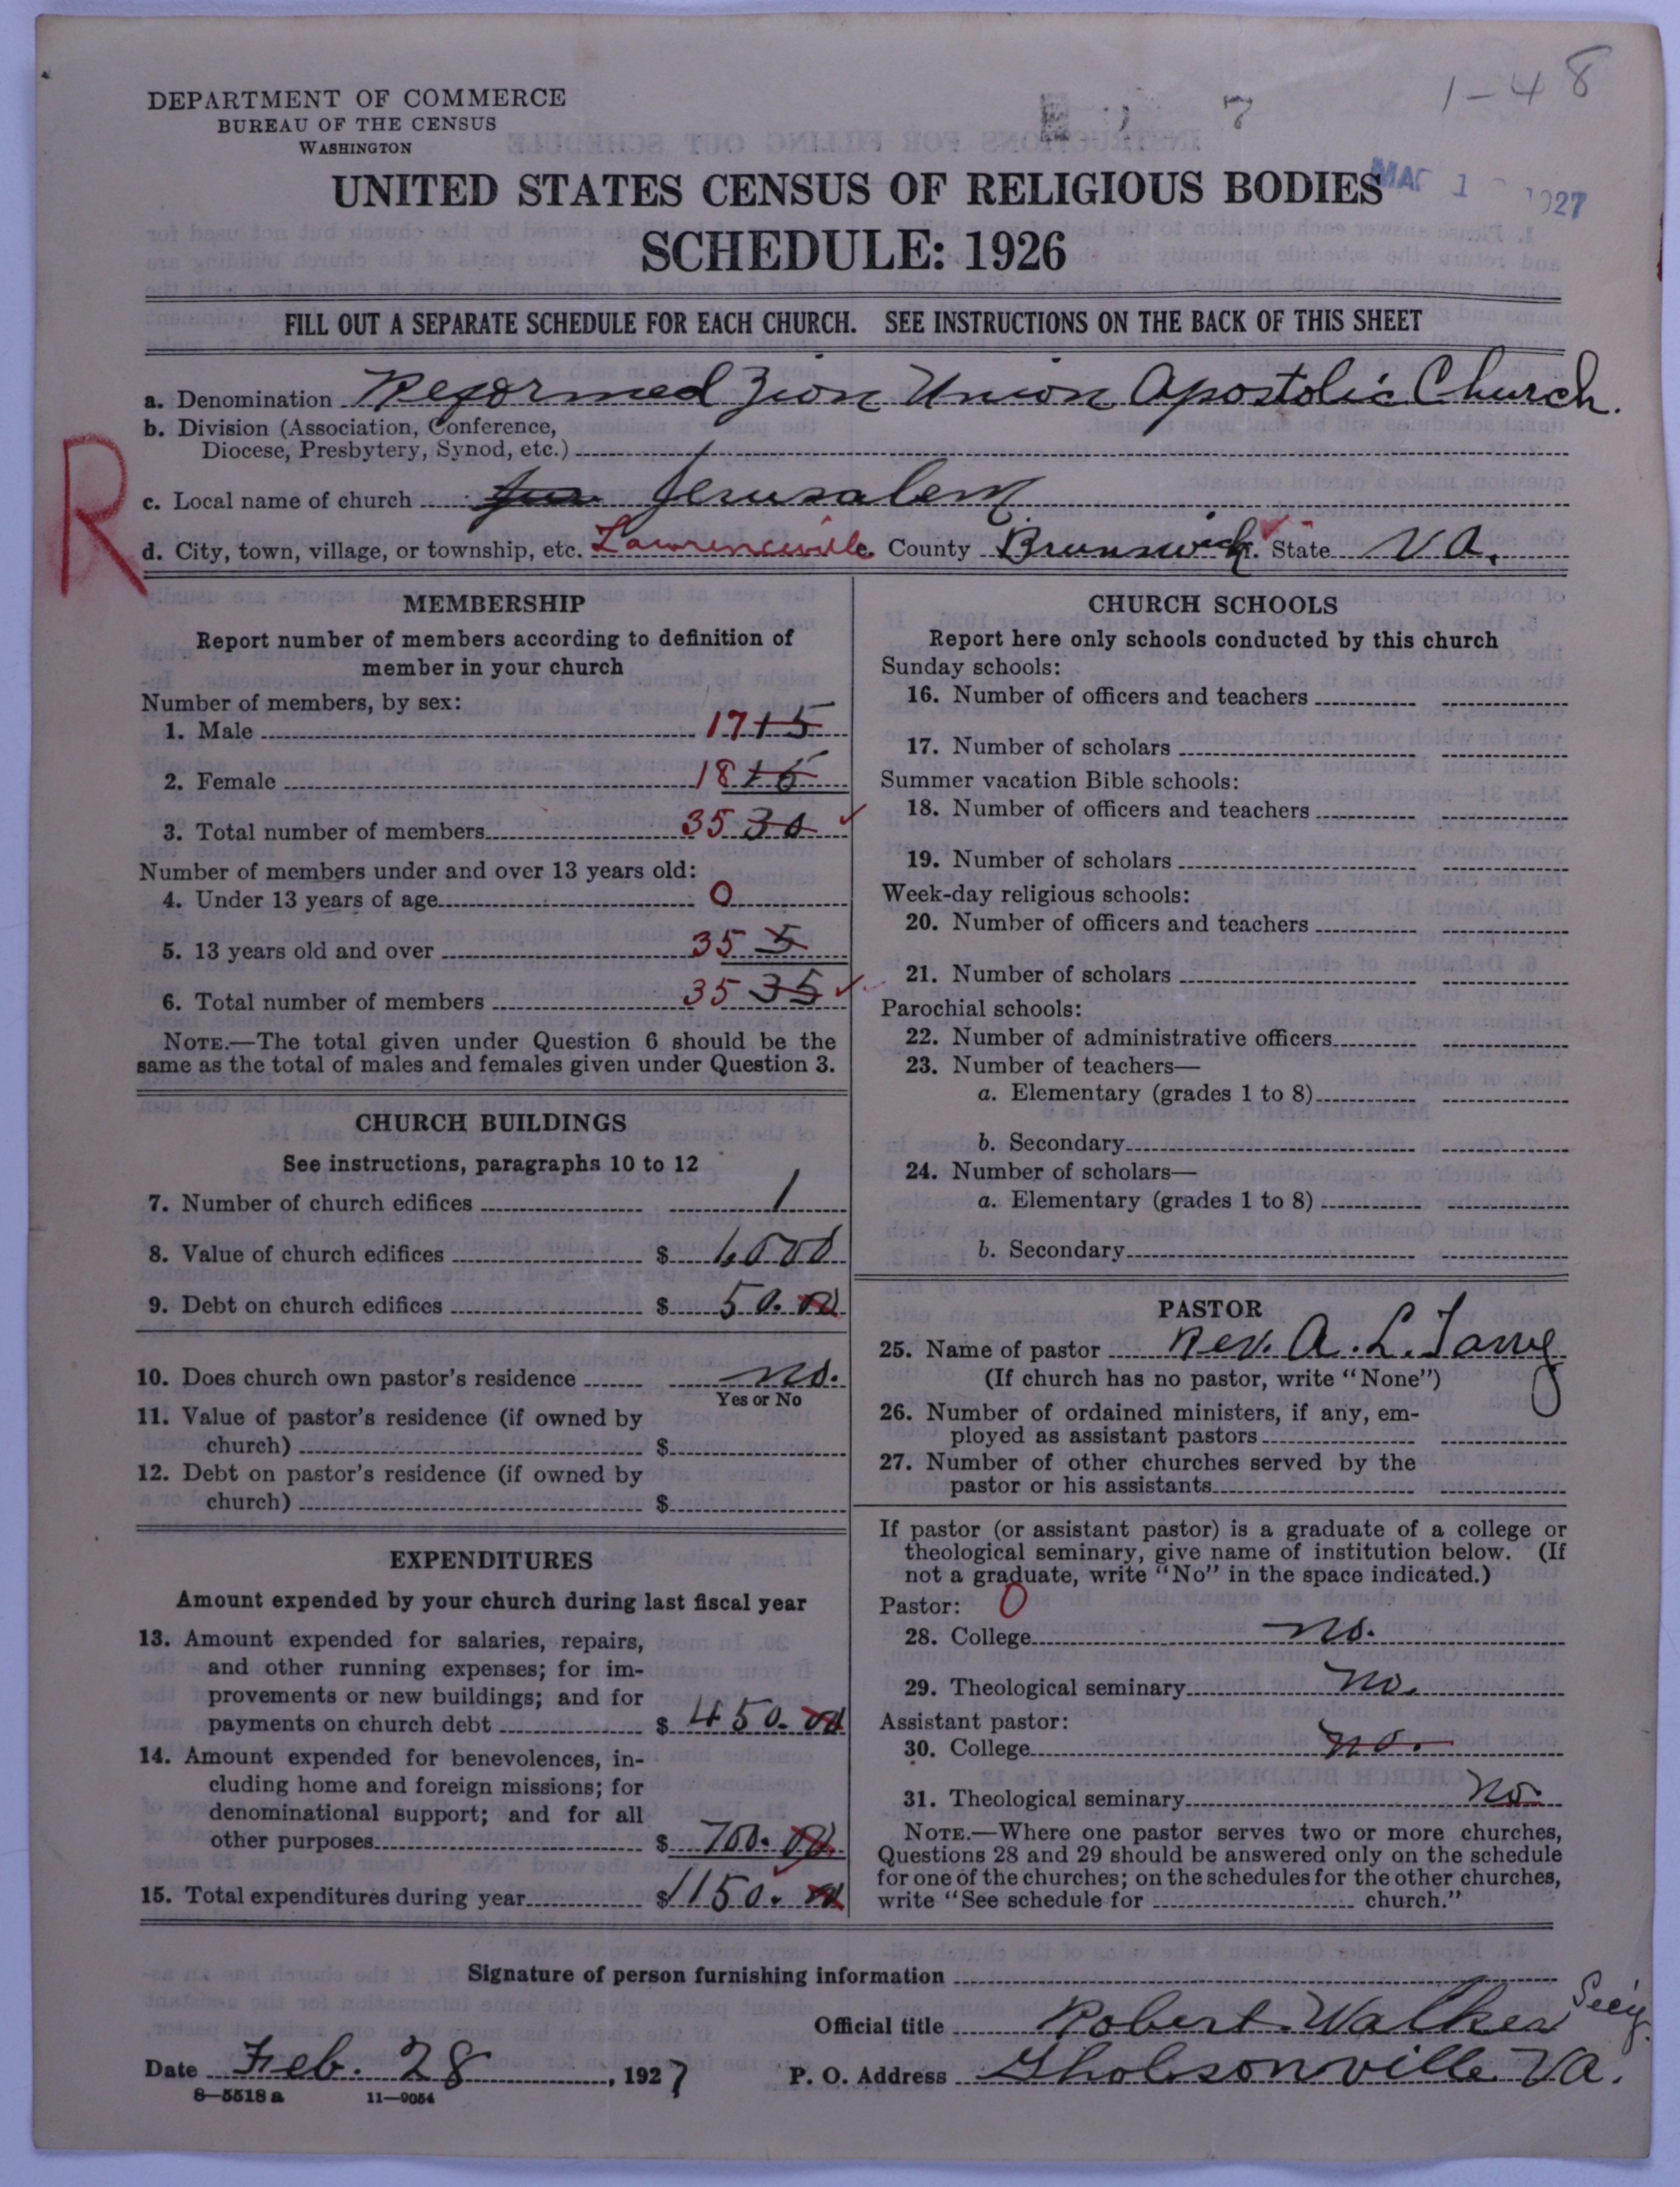 1-48
DEPARTMENT OF COMMERCE
BUREAU OF THE CENSUS
WASHINGTON
7
MAR 1 1927
UNITED STATES CENSUS OF RELIGIOUS BODIES
SCHEDULE: 1926
FILL OUT A SEPARATE SCHEDULE FOR EACH CHURCH. SEE INSTRUCTIONS ON THE BACK OF THIS SHEET
R
a. Denomination Reformed Zion Union Apostolic Church.
b. Division (Association, Conference,
Diocese, Presbytery, Synod, etc.)
c. Local name of church Jerusalem
d. City, town, village, or township, etc. Lawrenceville County Brunswick. State Va.
MEMBERSHIP
Report number of members according to definition of
member in your church
Number of members, by sex:
1. Male 17 15
2. Female 18
3. Total number of members 35 30
Number of members under and over 13 years old:
4. Under 13 years of age 0
5. 13 years old and over 35 5
6. Total number of members 35 35
NOTE.—The total given under Question 6 should be the
same as the total of males and females given under Question 3.
CHURCH BUILDINGS
See instructions, paragraphs 10 to 12
7. Number of church edifices 1
8. Value of church edifices $
9. Debt on church edifices $ 50.00
10. Does church own pastor's residence no.
Yes or No
11. Value of pastor's residence (if owned by
church) $
12. Debt on pastor's residence (if owned by
church) $
EXPENDITURES
Amount expended by your church during last fiscal year
13. Amount expended for salaries, repairs,
and other running expenses; for im-
provements or new buildings; and for
payments on church debt $ 450.00
14. Amount expended for benevolences, in-
cluding home and foreign missions; for
denominational support; and for all
other purposes $ 700.00
15. Total expenditures during year $ 1150.00
CHURCH SCHOOLS
Report here only schools conducted by this church
Sunday schools:
16. Number of officers and teachers
17. Number of scholars
Summer vacation Bible schools:
18. Number of officers and teachers
19. Number of scholars
Week-day religious schools:
20. Number of officers and teachers
21. Number of scholars
Parochial schools:
22. Number of administrative officers
23. Number of teachers—
a. Elementary (grades 1 to 8)
b. Secondary
24. Number of scholars—
a. Elementary (grades 1 to 8)
b. Secondary
PASTOR
25. Name of pastor Rev. A. L.
(If church has no pastor, write "None")
26. Number of ordained ministers, if any, em-
ployed as assistant pastors
27. Number of other churches served by the
pastor or his assistants
If pastor (or assistant pastor) is a graduate of a college or
theological seminary, give name of institution below. (If
not a graduate, write "No" in the space indicated.)
Pastor: 0
28. College no.
29. Theological seminary no.
Assistant pastor:
30. College no.
31. Theological seminary no.
NOTE.—Where one pastor serves two or more churches,
Questions 28 and 29 should be answered only on the schedule
for one of the churches; on the schedules for the other churches,
write "See schedule for church."
Signature of person furnishing information
Official title Robert Walker Secy
Date Feb. 28, 1927 P. O. Address Gholsonville Va.
8—5518 a 11—9054